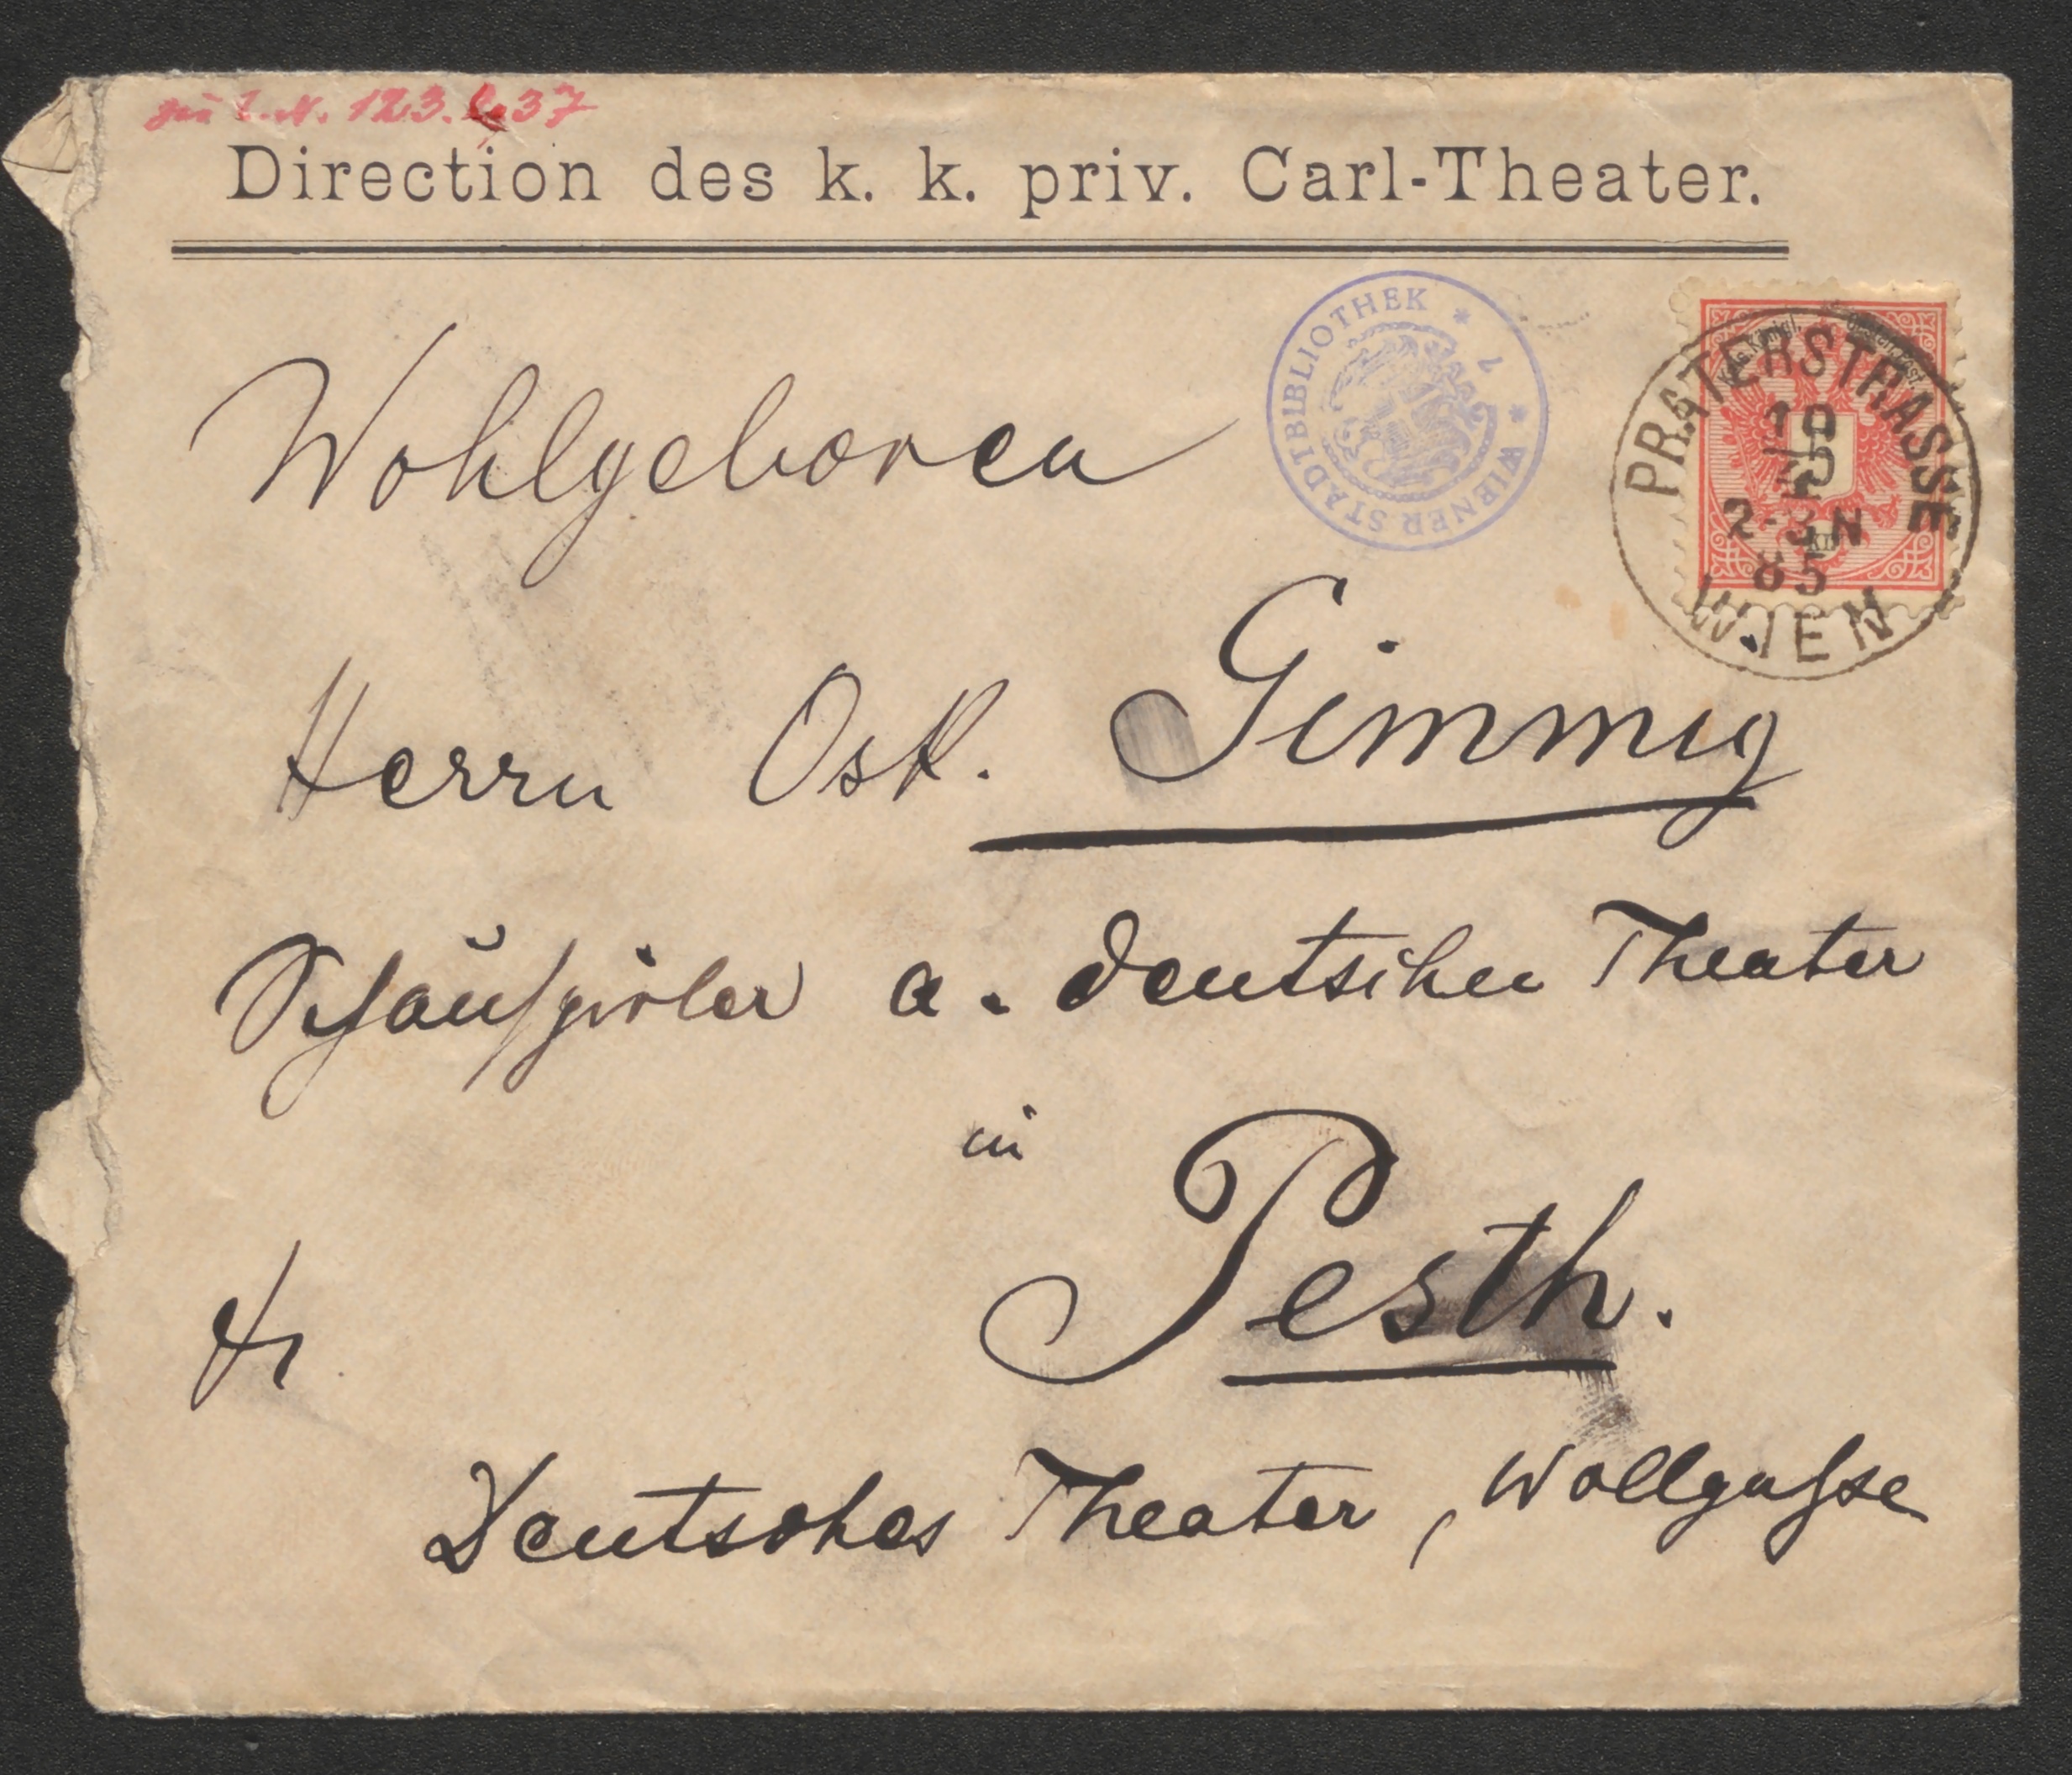 zu I.N. 123.637
Direction des k. k. priv. Carl-Theater.
WIENER STADTBIBLIOTHEK
PRATERSTRASSE
2-3N
85
WIEN
Wohlgeboren
Herrn Osk. Gimmig
Schauspieler a. deutschen Theater
in
Pesth.
Deutsches Theater, Wollgasse